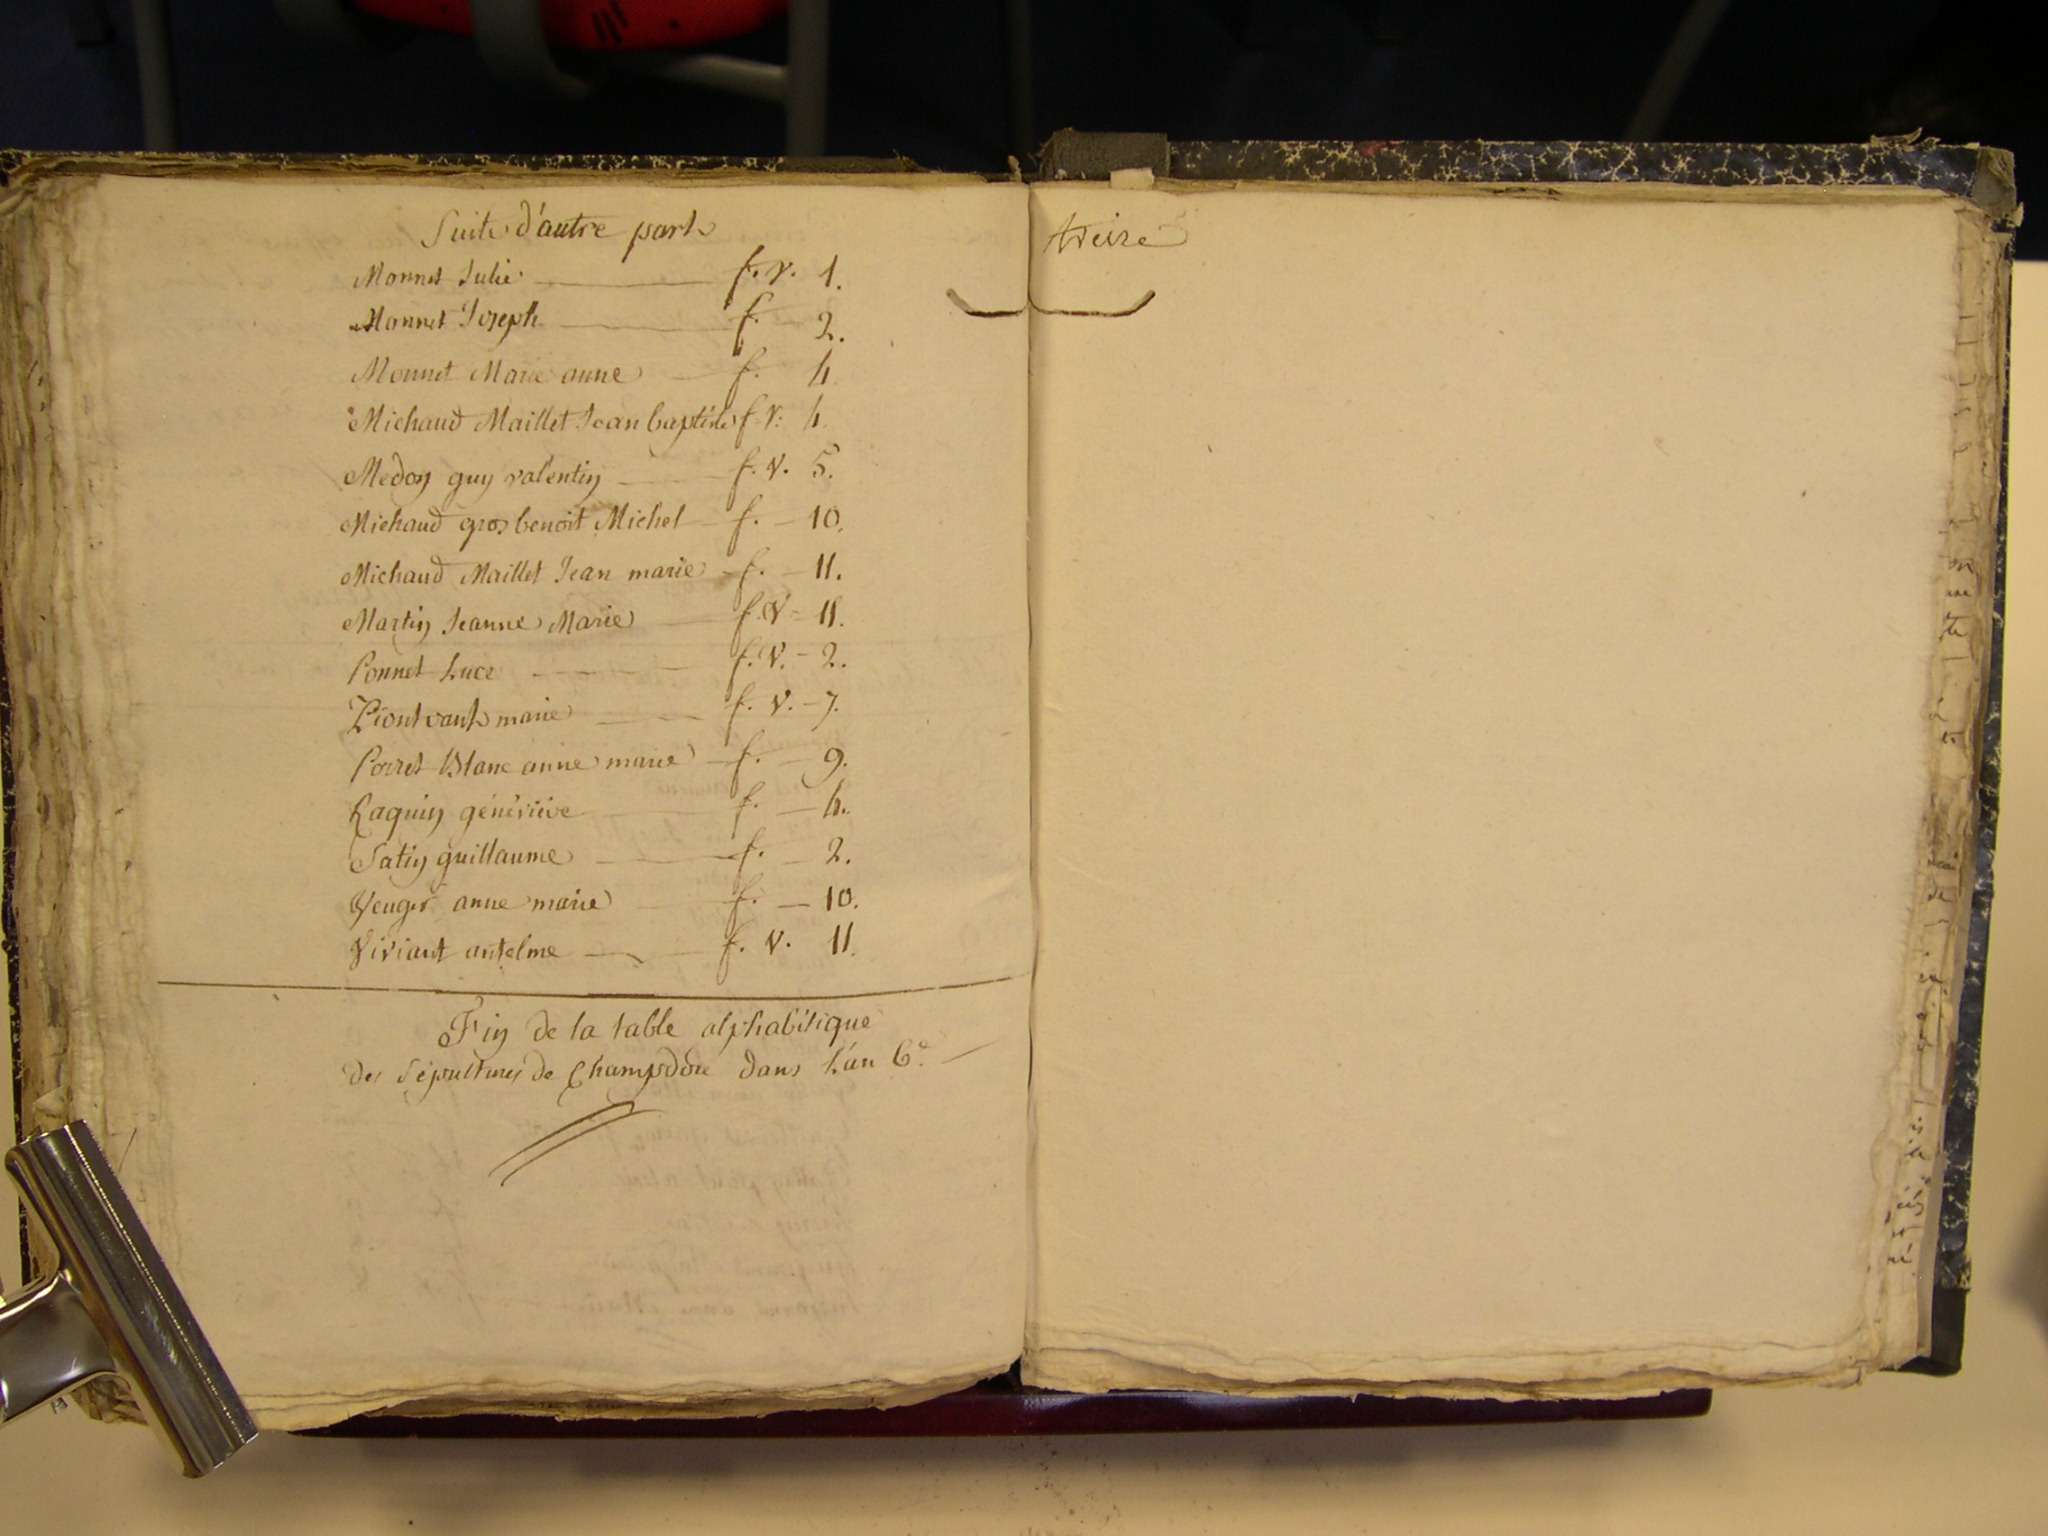 Suite d'autre part
Monnet Julie f. v. 1.
Monnet Joseph f. 2.
Monnet Marie anne f. 4
Michaud Maillet Jean baptiste f. v. 4.
Medon guy valentin f. v. 5.
Michaud gros benoit Michel f. 10.
Michaud Maillet Jean marie f. 11.
Martin Jeanne Marie f. v 11.
Ponnet Luce f. v. 2.
marie f. v. 7.
Porret Blanc anne marie f. 9.
Raquin géneviève f. 4.
Satin guillaume f. 2.
anne marie f. 10.
Viviant antelme f. v. 11.
Fin de la table alphabétique
des Sépultures de Champdore dans l'an 6e.
treize